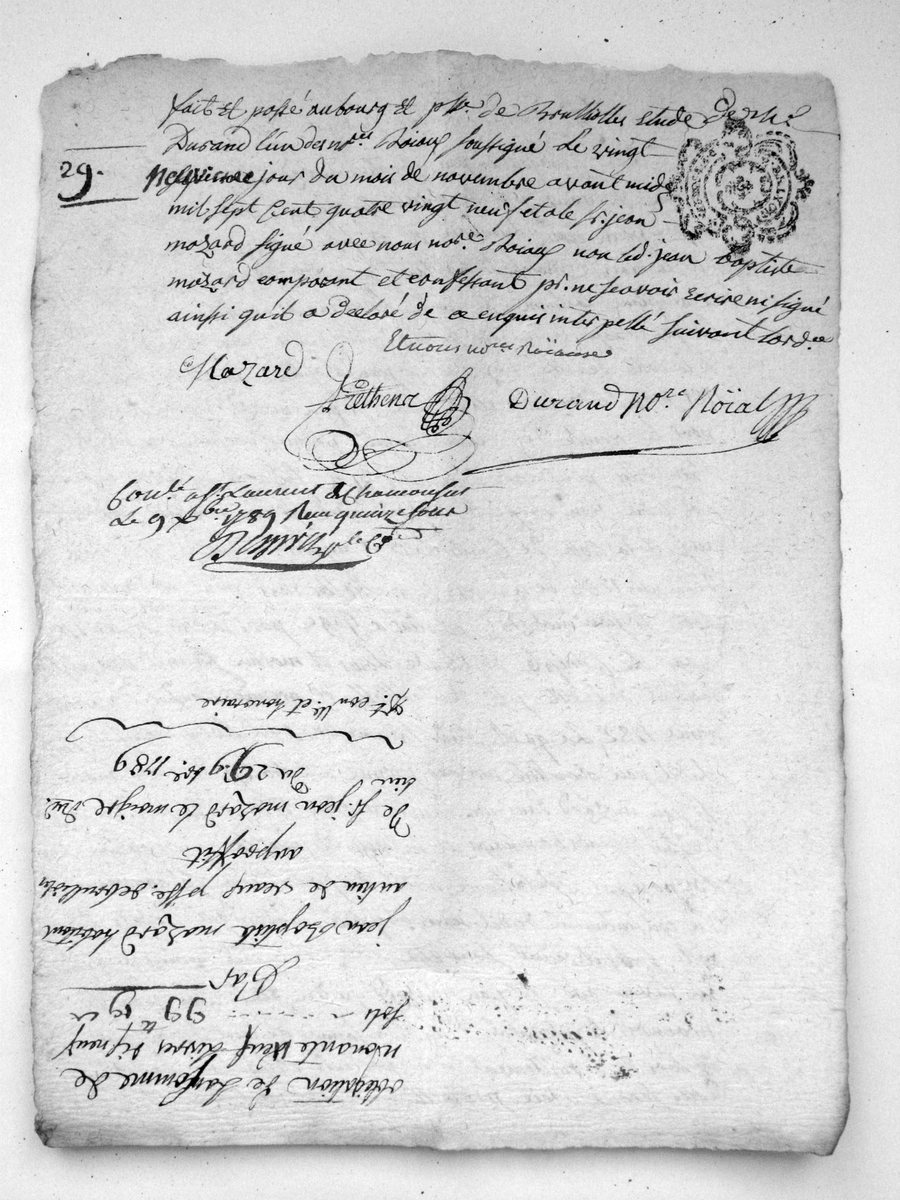 fait et passé au bourg et psse. de Brullioles etude de Me.
Durand l'un des nores. Roiaux soussigné le vingt
29. neufvieme jour du mois de novembre avant midy
mil sept cient quatre vingt neuf et a le sr. jean
mazard signé avec nous nore. Roiaux non led. jean baptiste
mazard comparant et confessant pr. ne scavoir ecrire ni signé
ainsi qu'il a declaré de ce enquis interpellé suivant l'ordce
Et nous nores Roïaux
Mazard
Durand Nore. Roïal
Conlé. a St. Laurent de Chamousset
Le 9 Xbre. 1789 Reçu quinze sous
obligation de la somme de
nonante neuf livres dix neuf
sols 99 lt 19 s
Par
jean Baptiste mazard habitant
au lieu de psse. de brulliole
au proffit
de sr. jean mazard le
du 29. 9bre. 1789
et honoraire